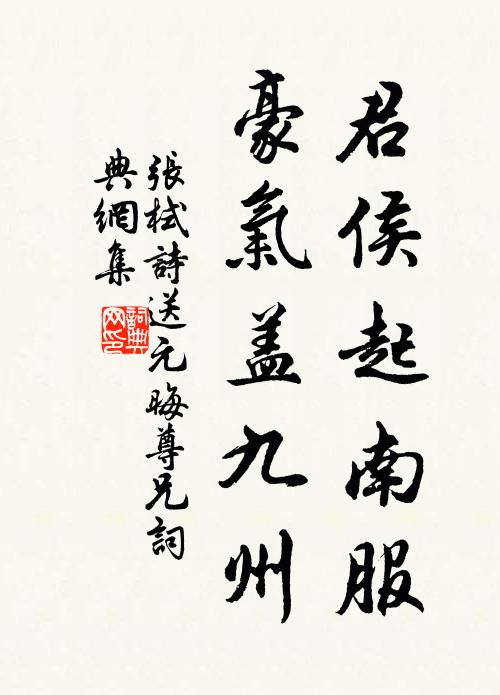 君侯起南服
豪氣盖九州
張栻詩送元晦尊兄詞
典網集
詞典网印